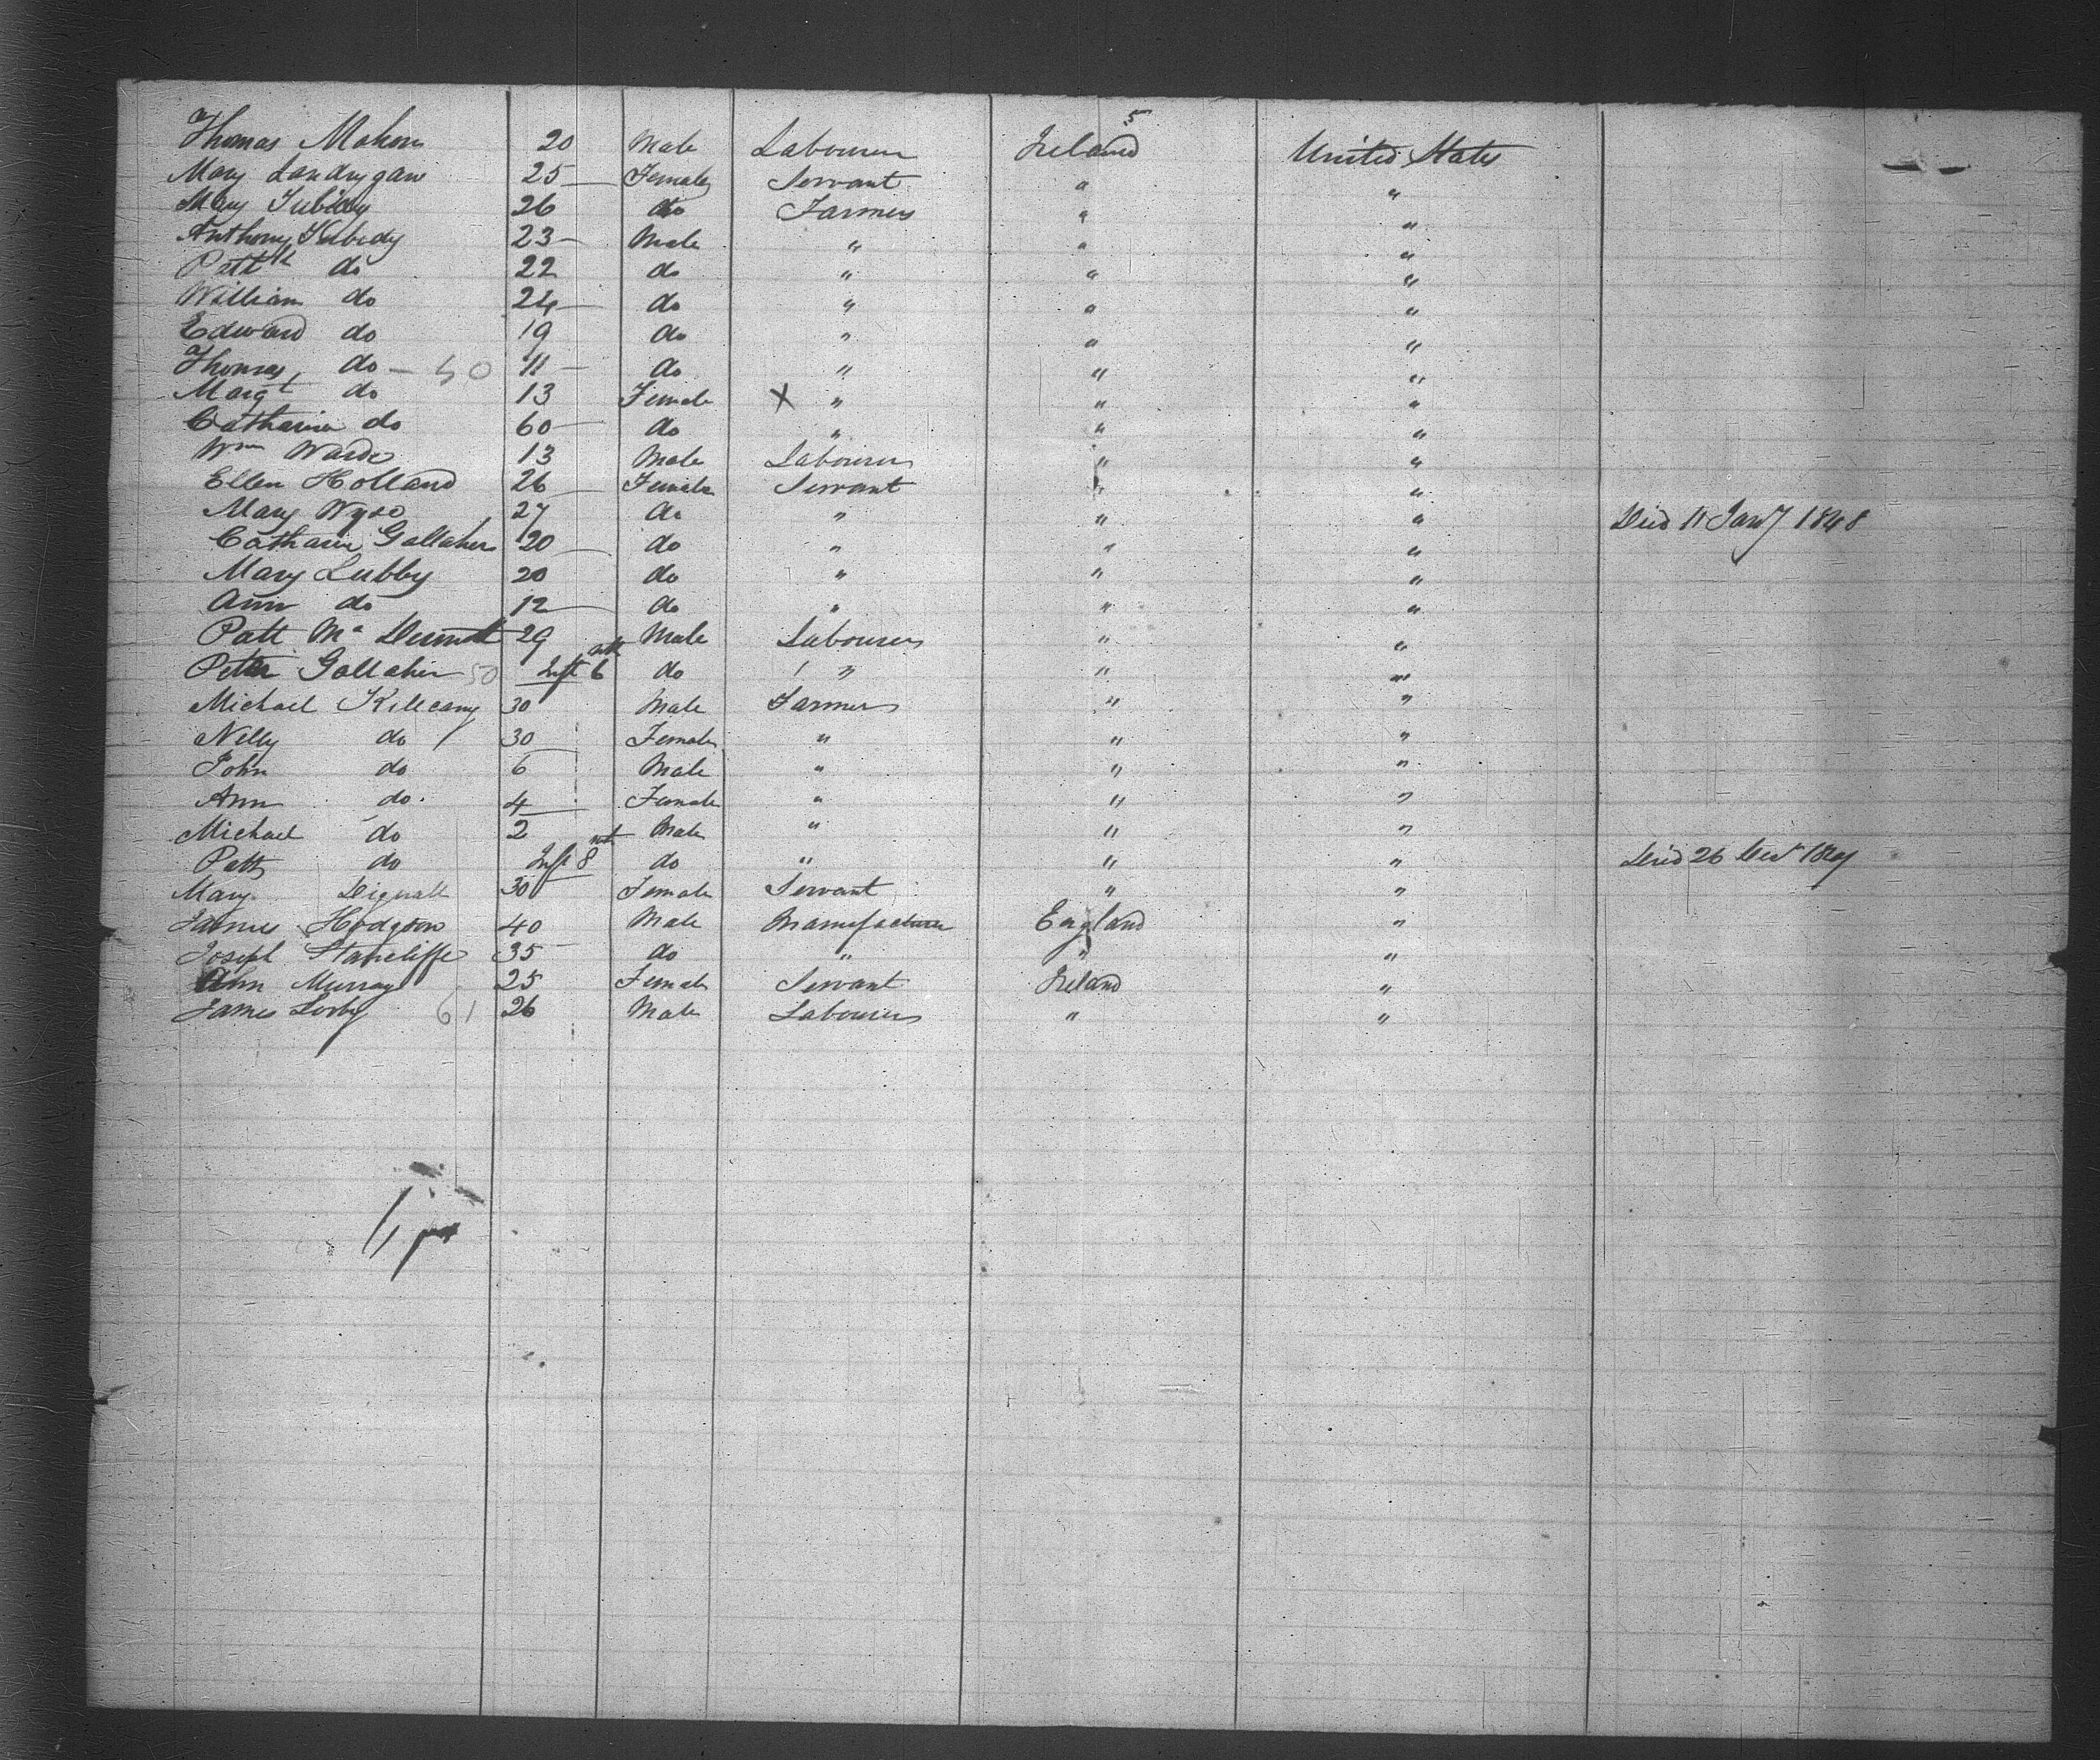 5
Thomas Mahon 20 Male Labourer Ireland United States
Mary Landrygan 25 Female Servant " "
Mary Tubidy 26 do Farmers " "
Anthony Tubidy 23 Male " " "
Patt^k do 22 do " " "
William do 24 do " " "
Edward do 19 do " " "
Thomas do 50 11 do " " "
Margt do 13 Female X " " "
Catharine do 60 do " " "
Wm Warde 13 Male Labourer " "
Ellen Holland 26 Female Servant " "
Mary Wyse 27 do " " " Died 11 Jany 1848
Catharine Gallaher 20 do " " "
Mary Lubby 20 do " " "
Ann do 12 do " " "
Patt Mc Dermott 29 Male Labourer " "
Peter Gallaher 50 Inft 6 mth do " " "
Michael Killeany 30 Male Farmer " "
Nelly do 30 Female " " "
John do 6 Male " " "
Ann do 4 Female " " "
Michael do 2 Male " " "
Patt do Inft 8 mth do " " " Died 26 Dec 1847
Mary 30 Female Servant " "
James Hodgson 40 Male Manufacturer England "
Joseph Stancliffe 35 do " " "
Ann Murray 25 Female Servant Ireland "
James 61 26 Male Labourer " "